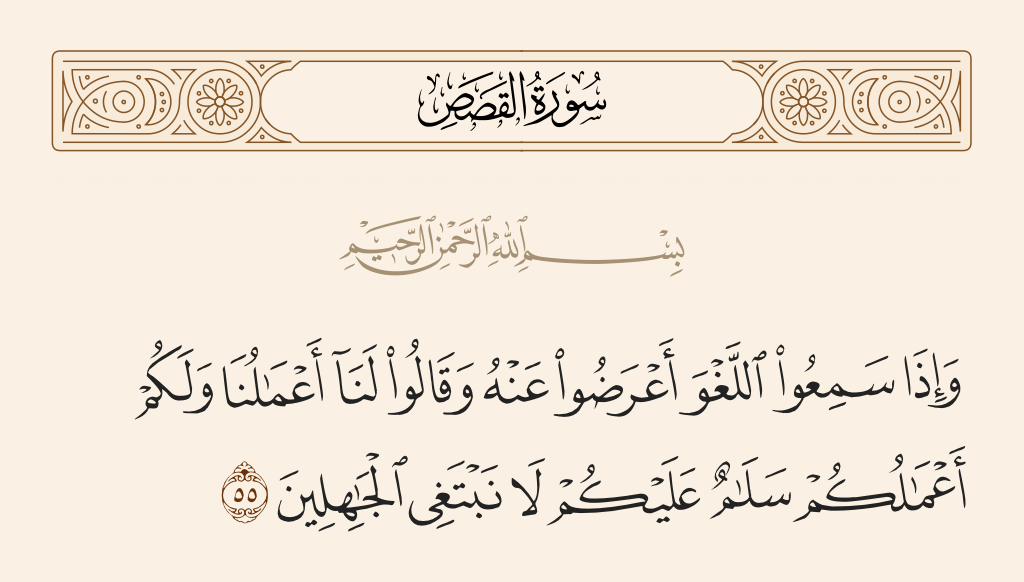 سُورَةُ القَصَصِ
بِسْمِ ٱللَّهِ ٱلرَّحْمَٰنِ ٱلرَّحِيمِ
وَإِذَا سَمِعُوا۟ ٱللَّغْوَ أَعْرَضُوا۟ عَنْهُ وَقَالُوا۟ لَنَآ أَعْمَٰلُنَا وَلَكُمْ
أَعْمَٰلُكُمْ سَلَٰمٌ عَلَيْكُمْ لَا نَبْتَغِى ٱلْجَٰهِلِينَ ٥٥